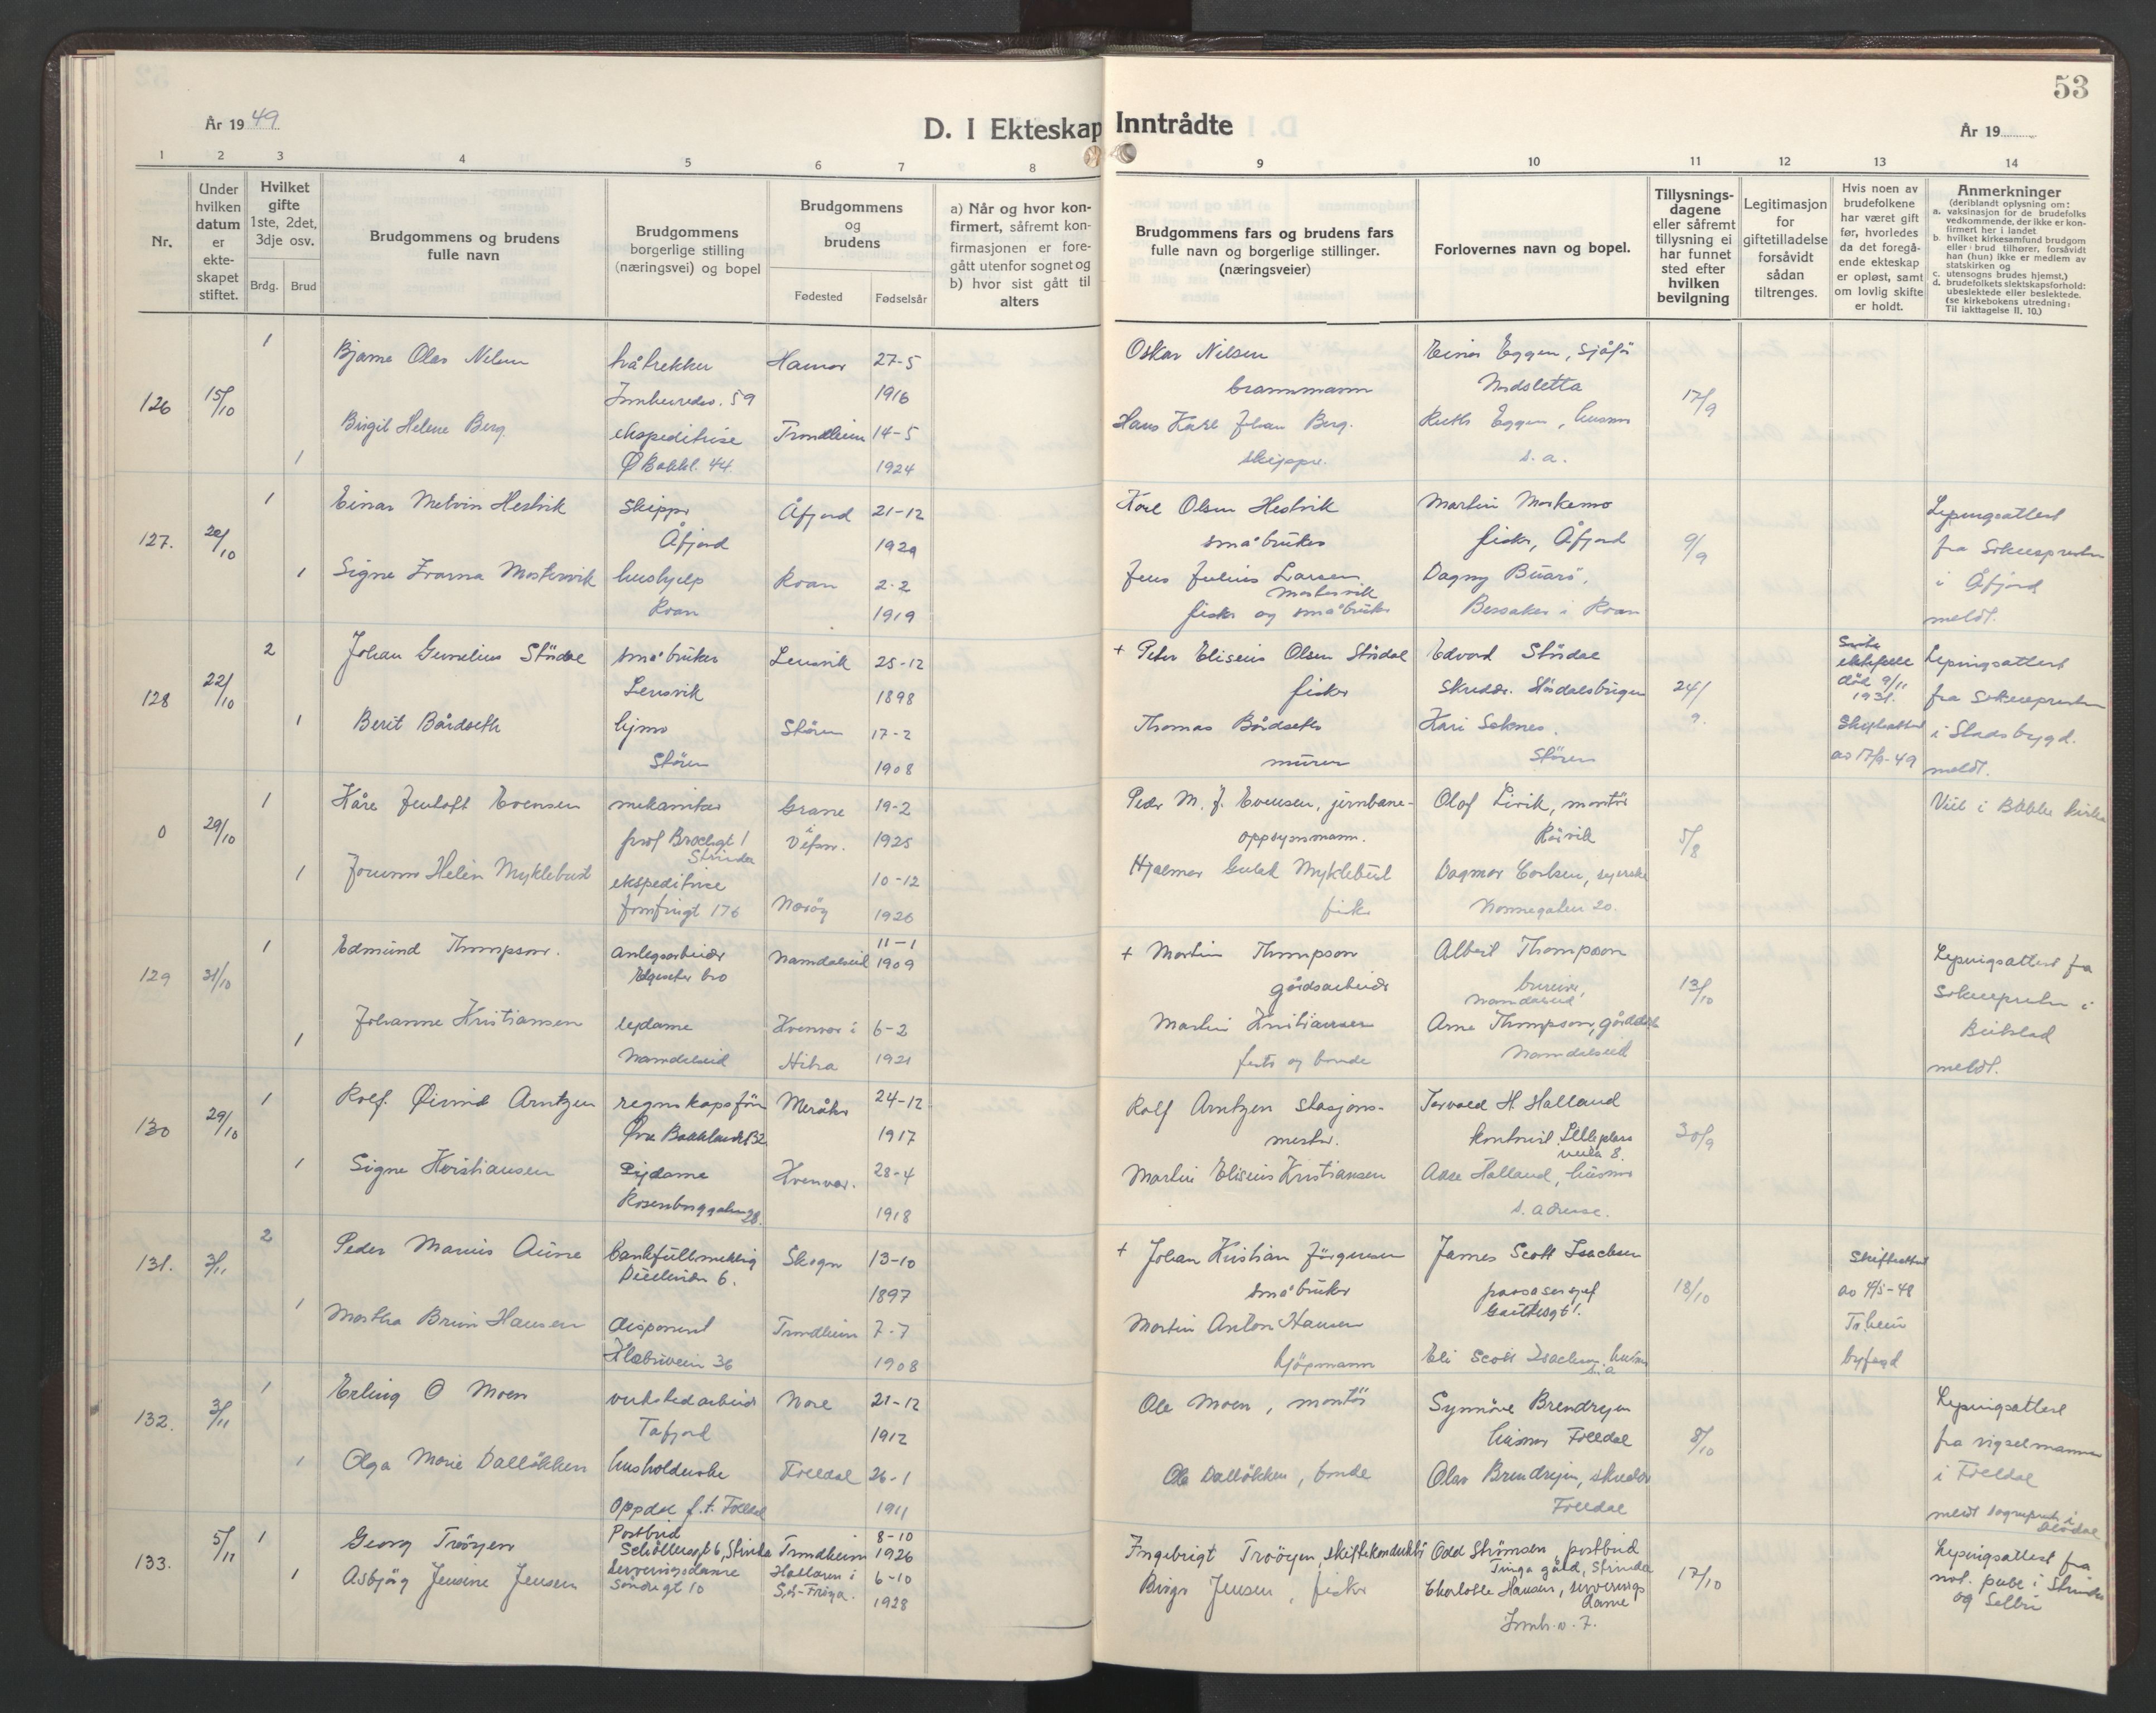 53
År 1949
D. I Ekteskap Inntrådte
År 19
1 2 3 4 5 6 7 8 9 10 11 12 13 14
Nr.
Under hvilken datum er ekte-skapet stiftet.
Hvilket gifte 1ste, 2det, 3dje osv.
Brdg. Brud
Brudgommens og brudens fulle navn
Brudgommens borgerlige stilling (næringsvei) og bopel
Brudgommens og brudens
Fødested Fødselsår
a) Når og hvor kon-firmert, såfremt kon-firmasjonen er fore-gått utenfor sognet og
b) hvor sist gått til alters
Brudgommens fars og brudens fars fulle navn og borgerlige stillinger. (næringsveier)
Forlovernes navn og bopel.
Tillysnings-dagene eller såfremt tillysning ei har funnet sted efter hvilken bevilgning
Legitimasjon for giftetilladelse forsåvidt sådan tiltrenges.
Hvis noen av brudefolkene har været gift før, hvorledes da det foregå-ende ekteskap er opløst, samt om lovlig skifte er holdt.
Anmerkninger
(deriblandt oplysning om:
a. vaksinasjon for de brudefolks vedkommende, der ikke er kon-firmert her i landet
b. hvilket kirkesamfund brudgom eller brud tilhører, forsåvidt han (hun) ikke er medlem av statskirken og
c. utensogns brudes hjemst.)
d. brudefolkets slektskapsforhold: ubeslektede eller beslektede. (se kirkebokens utredning: Til iakttagelse II. 10.)
126 15/10 1 Bjarne Olav Nilsen Hamar 27-5 1916 Oskar Nilsen brannmann Einar Eggen, sjåfør 17/9
1 Birgit Helene Berg ekspeditrise Ø Bakkl. 44 Trondheim 14-5 1924 Hans Karl Johan Berg. skipper. Ruth Eggen, husmor s. a.
127. 22/10 1 Einar Melvin Hestvik skipper Åfjord Åfjord 21-12 1920 Karl Olsen Hestvik småbruker Martin Markemo fisker, Åfjord 9/9 Lysingsattest fra Soknepresten i Åfjord meldt.
1 Signe Ivarna Mostervik hushjelp Roan Roan 2-2 1919 Jens Julius Larsen Mostervik fisker og småbruker Dagny Buarö, Bessaker i Roan
128 22/10 2 Johan Cornelius Stördal småbruker Lensvik Lensvik 25-12 1898 + Peter Eliseus Olsen Stördal fisker Edvard Stördal 24/9 ektefelle död 9/11 1931. Skifteattest av 17/9-49 Lysingsattest fra Soknepresten i Stadsbygd. meldt.
1 Berit Bårdseth Stören Stören 17-2 1908 Thomas Bårdseth murer Kari Soknes. Stören
0 29/10 1 Kåre Jentoft Evensen mekaniker prof Brochsgt 1 Strinda Grane i Vefsn. 19-2 1925 Peder M. J. Evensen, jernbane-oppsynsmann. Olaf Livik, montör 5/8 Viet i Bakke kirke
1 Jorunn Helén Myklebust ekspeditrise Jomfrugt 176 Nærøy 10-12 1926 Hjalmar Gulak Myklebust fisker Dagmar Carlsen, syerske Nonnegaten 20.
129 31/10 1 Edmund Thompson. anlegsarbeider Elgseter bro Namdalseid 11-1 1909 + Martin Thompson gårdsarbeider Albert Thompson Namdalseid 13/10 Lysingsattest fra Sokneprest i Beitstad meldt.
1 Johanne Kristiansen sydame Namdalseid Kvenvær i Hitra 6-2 1921 Martin Kristiansen fisker og bonde Arne Thompson, Namdalseid
130 29/10 1 Rolf Øivind Arntzen regnskapsför Øvre Bakklandet 32 Meråker 24-12 1917 Rolf Arntzen stasjons-mester. Torvald H. Halland 30/9
1 Signe Kristiansen Sydame Rosenborggaten 28. Kvenvær. 28-4 1918 Martin Eliseus Kristiansen Aase Halland, husmor s. adresse.
131. 3/11 2 Peder Marius Aune bankfullmektig Skogn 13-10 1897 + Johan Kristian Jörgensen småbruker James Scott Isachsen 18/10 Skifteattest av 4/5-48 Tr.heim byfogd
1 Martha Brun Hansen disponent Klæbuveien 36 Trondheim 7-7 1908 Martin Anton Hansen kjöpmann Eli Scott Isachsen, husmor s.a
132. 3/11 1 Erling O Moen verkstedarbeider Tafjord Nore 21-12 1912 Ole Moen, montör Synnöve Brendryen husmor Folldal 8/10 Lysingsattest fra vigselmannen i Folldal
1 Olga Marie Dallökken husholderske Oppdal f.t. Folldal Folldal 26-1 1911 Ole Dallökken, bonde Olav Brendryen, skredder Folldal
133. 5/11 1 Georg Tröyen Postbud Strinda Trondheim 8-10 1926 Ingebrigt Tröyen, skiftekonduktör Odd Strömsen, postbud Tunga gård, Strinda 17/10 Lysingsattest fra not. publ i Strinda og Selbu
1 Asbjörg Jensine Jensen Serveringsdame Söndregt 10 Hallaren i Sör-Fröya. 6-10 1928 Birger Jensen, fisker Charlotte Hansen, serveringsdame Innh.v. 7.